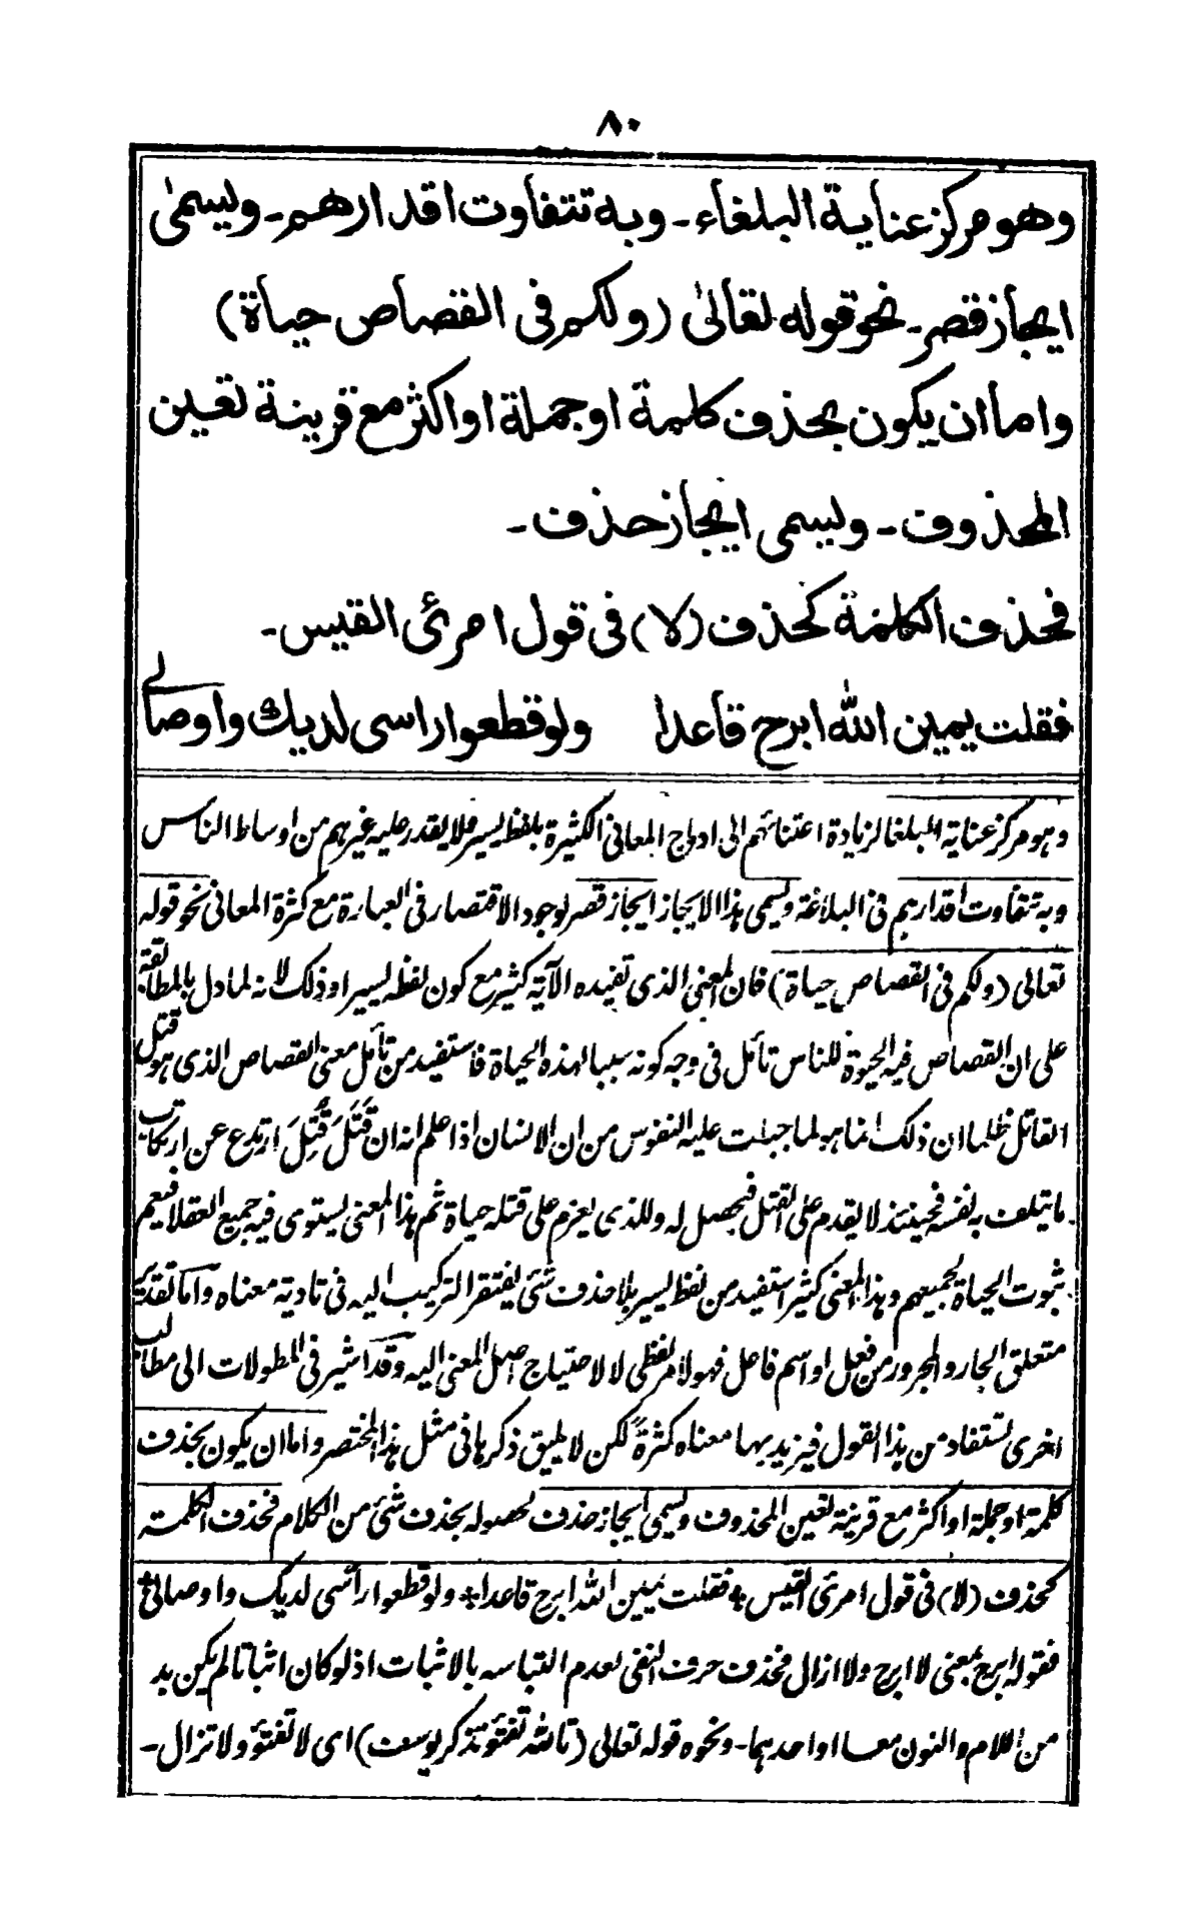 ٨٠
وهو مركز عناية البلغاء ـ وبه تتفاوت اقدارهم ـ ويسمىٰ
ايجاز قصر ـ نحو قوله تعالىٰ (ولكم فى القصاص حياة)
واما ان يكون بحذف كلمة او جملة او اكثر مع قرينة تعين
المحذوف ـ ويسمى ايجاز حذف ـ
فحذف الكلمة كحذف (لا) فى قول امرئ القيس ـ
فقلت يمين الله ابرح قاعدا ولو قطعوا راسى لديك واوصالى
وهو مركز عناية البلغا لزيادة اعتنائهم الى ادماج المعانى الكثيرة بلفظ يسير فلا يقدر عليه غيرهم من اوساط الناس
وبه تتفاوت اقدارهم فى البلاغة ويسمى هذا الايجاز ايجاز قصر لوجود الاقتصار فى العبارة مع كثرة المعانى نحو قوله
تعالى (ولكم فى القصاص حياة) فان المعنى الذى تفيده الآية كثير مع كون لفظه يسيرا وذلك لانه لما دل بالمطابقة
على ان القصاص فيه الحيوة للناس تأمل فى وجه كونه سببا لهذه الحياة فاستفيد من تأمل معنى القصاص الذى هو قتل
القاتل ظلما ان ذلك انما هو لما جبلت عليه النفوس من ان الانسان اذا علم انه ان قَتَلَ قُتِلَ ارتدع عن ارتكاب
ما يتلف به نفسه فحينئذ لا يقدم على القتل فيحصل له وللذى يعزم على قتله حياة ثم هذا المعنى يستوى فيه جميع العقلا فيعم
ثبوت الحياة لجميعهم وهذا المعنى كثير استفيد من لفظ يسير بلا حذف شئ يفتقر التركيب اليه فى تادية معناه واما تقدير
متعلق الجار والمجرور من فعل او اسم فاعل فهو لامر لفظى لا لاحتياج اصل المعنى اليه وقد اشير فى المطولات الى مطالب
اخرى تستفاد من هذا القول فيزيد بها معناه كثرةً لكن لا يليق ذكرها فى مثل هذا المختصر واما ان يكون بحذف
كلمة او جملة او اكثر مع قرينة تعين المحذوف ويسمى ايجاز حذف لحصوله بحذف شئ من الكلام فحذف الكلمة
كحذف (لا) فى قول امرئ القيس * فقلت يمين الله ابرح قاعدا * ولو قطعوا رأسى لديك واوصالى *
فقوله ابرح بمعنى لا ابرح ولا ازال فحذف حرف النفى لعدم التباسه بالاثبات اذ لو كان اثباتا لم يكن بد
من اللام والنون معا او احدهما ـ ونحوه قوله تعالى (تالله تفتؤ تذكر يوسف) اى لا تفتؤ ولا تزال ـ